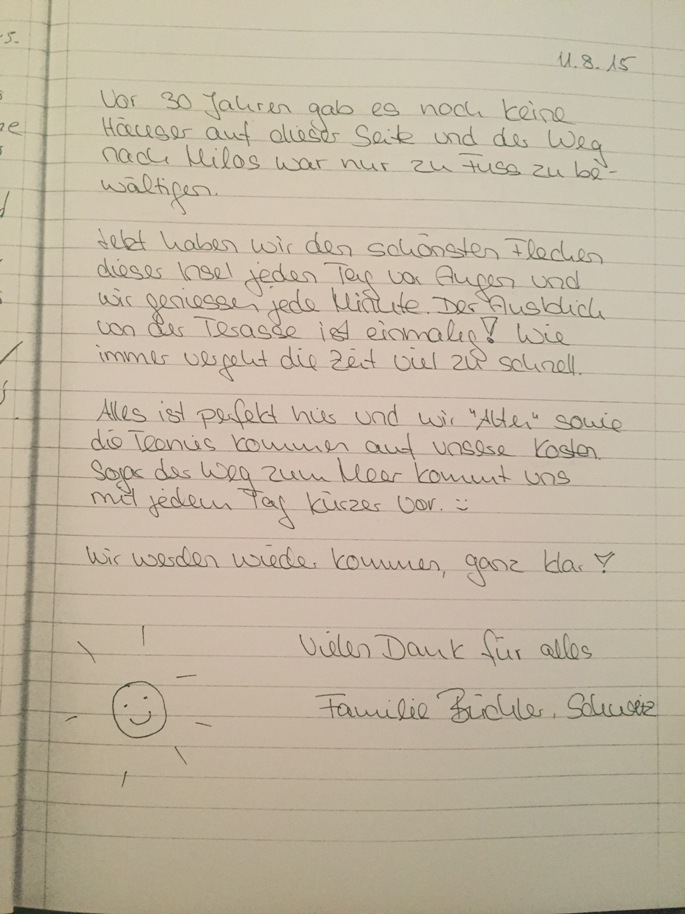 11.8.15
Vor 30 Jahren gab es noch keine
Häuser auf dieser Seite und der Weg
nach Milos war nur zu Fuss zu be-
wältigen.
Jetzt haben wir den schönsten Flecken
dieser Insel jeden Tag vor Augen und
wir geniessen jede Minute. Der Ausblick
von der Terasse ist einmalig! Wie
immer vergeht die Zeit viel zu schnell.
Alles ist perfekt hier und wir "Alten" sowie
die Teenies kommen auf unsere Kosten.
Sogar der Weg zum Meer kommt uns
mit jedem Tag kürzer vor. :-)
Wir werden wieder kommen, ganz klar!
Vielen Dank für alles
Familie Büchler, Schweiz